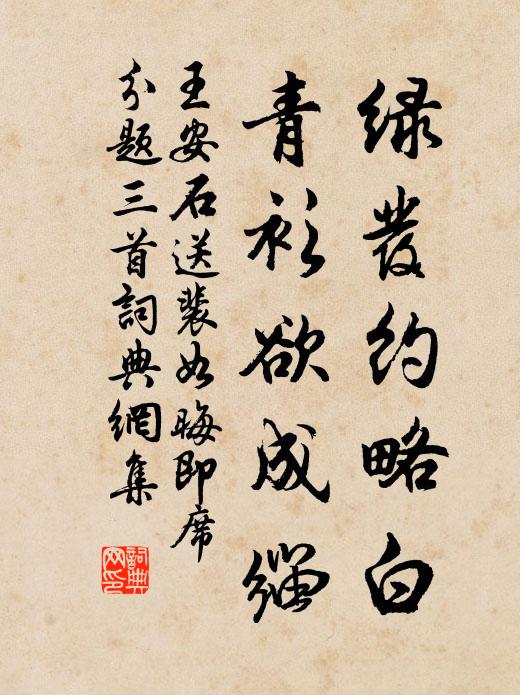 綠發約略白
青衫欲成緇
王安石送裴如晦即席
分題三首詞典網集
詞典
网印